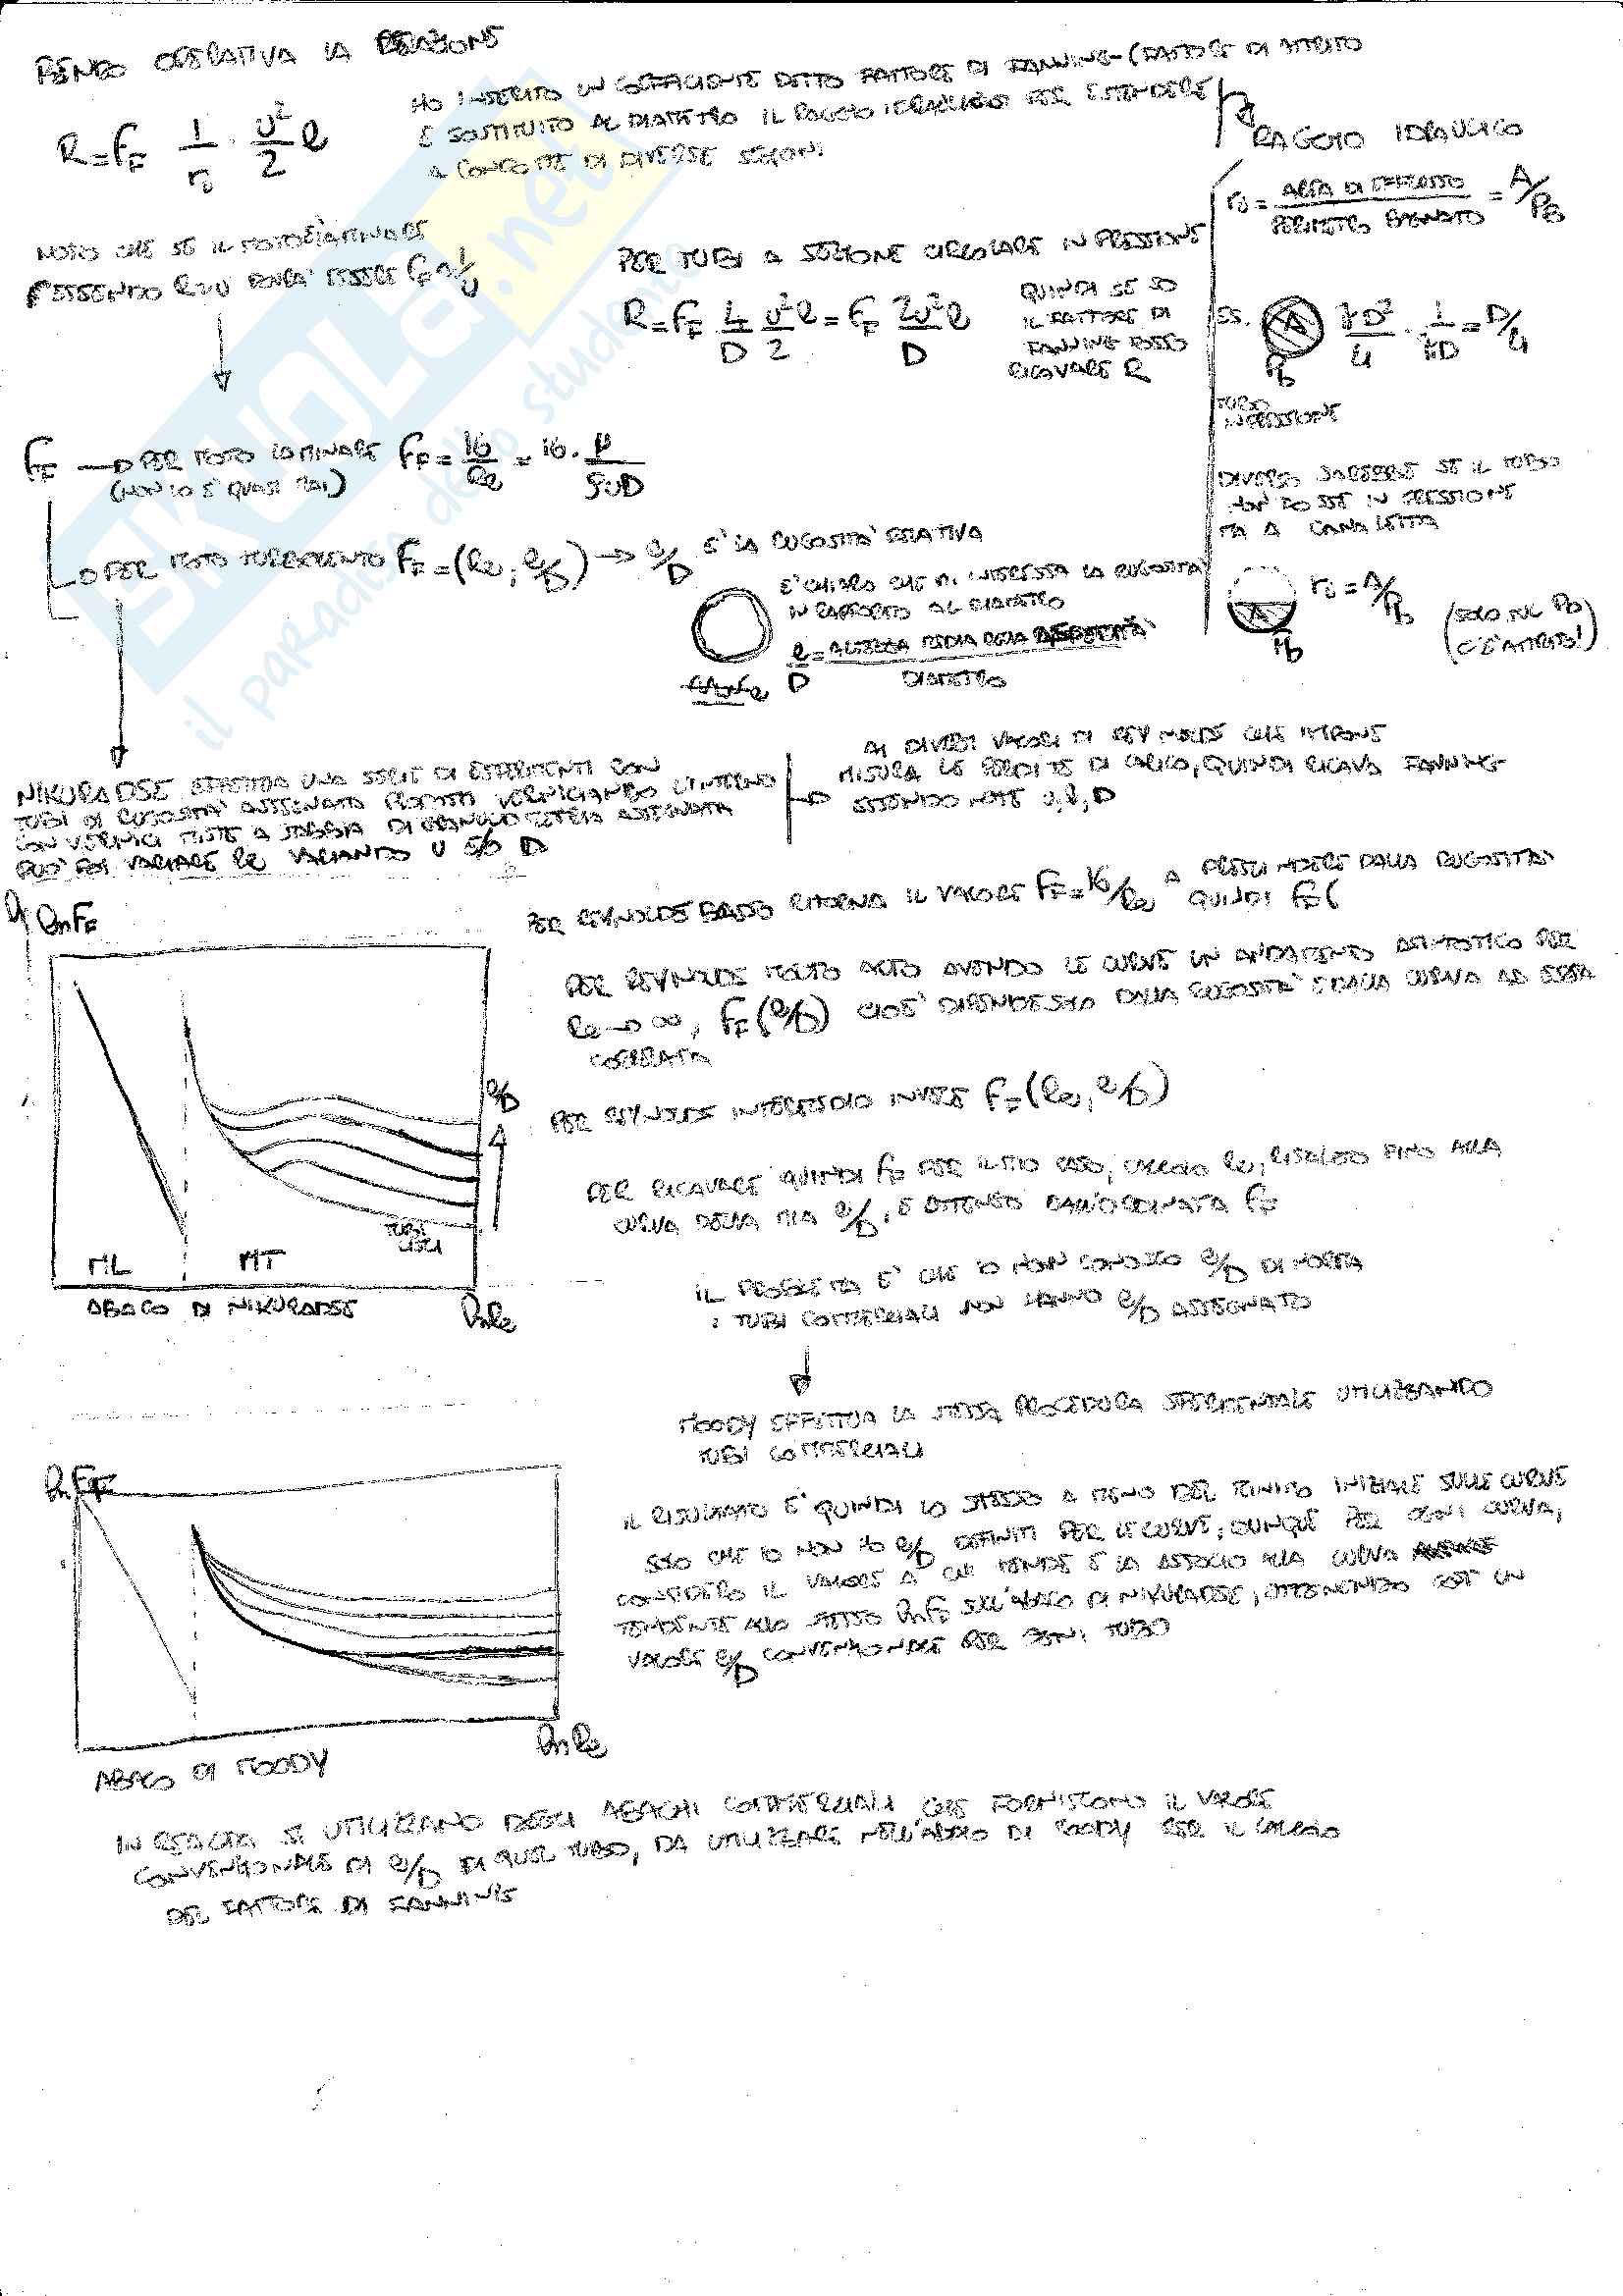 RENDO OPERATIVA LA RELAZIONE
R = f_F 1/r_i · U²/2 l
HO INSERITO UN COEFFICIENTE DETTO FATTORE DI FANNING (FATTORE DI ATTRITO
E SOSTITUITO AL DIAMETRO IL RAGGIO IDRAULICO PER ESTENDERE
A CONDOTTE DI DIVERSE SEZIONI
RAGGIO IDRAULICO
r_i = AREA DI DEFLUSSO / PERIMETRO BAGNATO = A/P_B
NOTO CHE SE IL MOTO È LAMINARE
ESSENDO R∝U DOVRA' ESSERE f_F ∝ 1/U
PER TUBI A SEZIONE CIRCOLARE IN PRESSIONE
R = f_F 4/D U²/2 l = f_F 2U²/D l
QUINDI SE SO
IL FATTORE DI
FANNING POSSO
RICAVARE R
ES. A πD²/4 · 1/πD = D/4
P_b
TUBO
IN PRESSIONE
f_F → PER MOTO LAMINARE f_F = 16/Re = 16 · μ/ρUD
(NON LO È QUASI MAI)
DIVERSO SAREBBE SE IL TUBO
NON FOSSE IN PRESSIONE
MA A CANALETTA
→ PER MOTO TURBOLENTO f_F = (Re, e/D) → e/D E' LA RUGOSITA' RELATIVA
E' CHIARO CHE MI INTERESSA LA RUGOSITA'
IN RAPPORTO AL DIAMETRO
e/D = ALTEZZA MEDIA DELLA / DIAMETRO
A r_i = A/P_b (SOLO NEL P_b
P_b C'È ATTRITO!)
NIKURADSE EFFETTUA UNA SERIE DI ESPERIMENTI CON
TUBI DI RUGOSITA' ASSEGNATA PRODOTTI VERNICIANDO L'INTERNO
CON VERNICI MISTE A SABBIA DI GRANULOMETRIA ASSEGNATA
PUO' POI VARIARE Re VARIANDO U E/O D
AI DIVERSI VALORI DI REYNOLDS CHE IMPONE
MISURA LE PERDITE DI CARICO, QUINDI RICAVA FANNING
ESSENDO NOTE U, l, D
PER REYNOLDS BASSO RITORNA IL VALORE f_F = 16/Re A PRESCINDERE DALLA RUGOSITA'
QUINDI f_F (
ln f_F
PER REYNOLDS MOLTO ALTO AVENDO LE CURVE UN ANDAMENTO ASINTOTICO PER
Re → ∞, f_F (e/D) CIOÈ DIPENDE SOLO DALLA RUGOSITA' E DALLA CURVA AD ESSA
CORRELATA
e/D
PER REYNOLDS INTERMEDIO INVECE f_F (Re, e/D)
PER RICAVARE QUINDI f_F PER IL MIO CASO, CALCOLO Re, RISALGO FINO ALLA
CURVA DELLA MIA e/D, E OTTENGO DALL'ORDINATA f_F
TUBI
LISCI
ML MT
ABACO DI NIKURADSE ln Re
IL PROBLEMA E' CHE IO NON CONOSCO e/D DI NORMA
I TUBI COMMERCIALI NON HANNO e/D ASSEGNATO
MOODY EFFETTUA LA STESSA PROCEDURA SPERIMENTALE UTILIZZANDO
TUBI COMMERCIALI
ln f_F
IL RISULTATO E' QUINDI LO STESSO A MENO DEL INIZIALE SULLE CURVE
SOLO CHE IO NON HO e/D DEFINITI PER LE CURVE, DUNQUE PER OGNI CURVA,
CONSIDERO IL VALORE A CUI TENDE E LA ASSOCIO ALLA CURVA
TENDENTE ALLO STESSO ln f_F SULL'ABACO DI NIKURADSE, OTTENENDO COSÌ UN
VALORE e/D CONVENZIONALE PER OGNI TUBO
ln Re
ABACO DI MOODY
IN REALTA' SI UTILIZZANO DEGLI ABACHI COMMERCIALI CHE FORNISCONO IL VALORE
CONVENZIONALE DI e/D DI QUEL TUBO, DA UTILIZZARE NELL'ABACO DI MOODY PER IL CALCOLO
DEL FATTORE DI FANNING
SKUOLA.net
il paradiso dello studente